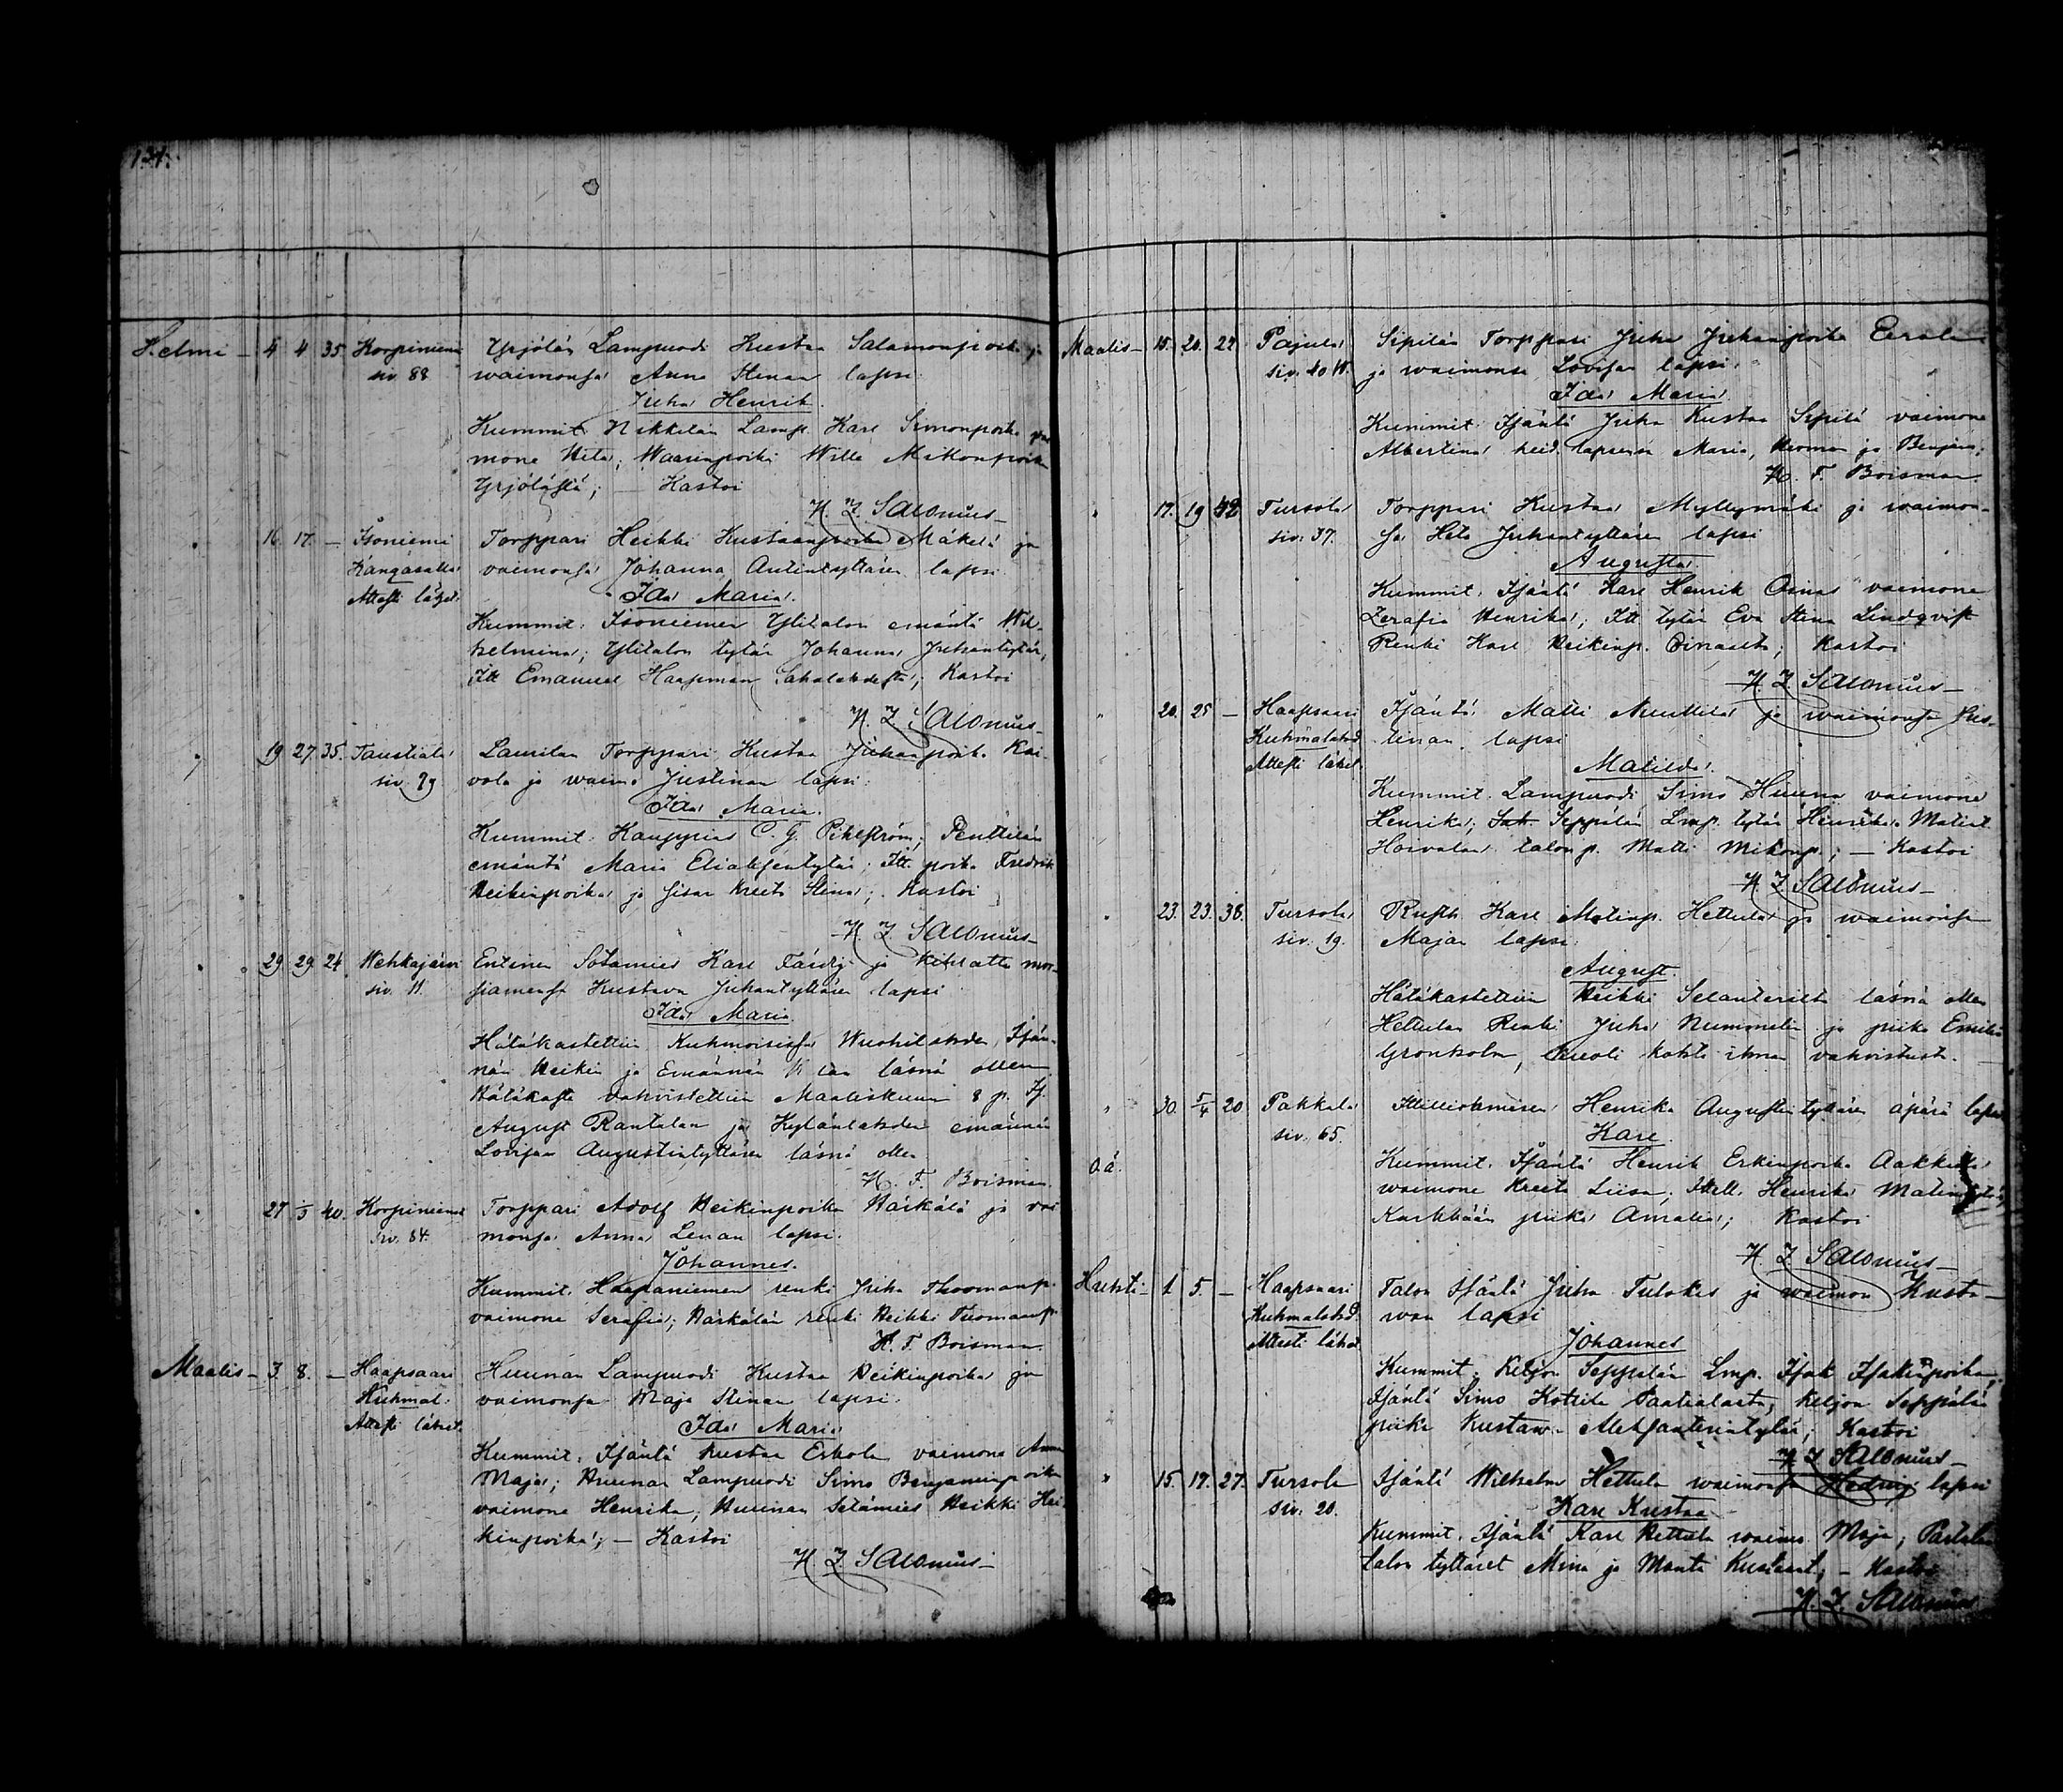 134.
Helmi – 4 4 35. Korpiniemi Yrjölän Lampuodi Kustaa Salamonpoika ja
siv. 88 waimonsa Anna Stinan lapsi.
Juha Henrik.
Kummit. Nikkilän Lamp. Karl Simonpoika
mone Heta; Waarinpoika Wille Mikonpoika
Yrjölästä; – Kastoi
H. Z. Salonius –
16. 17. – Isoniemi Torppari Heikki Kustaanpoika Mäkelä ja
Kangasala waimonsa Johanna Antintyttären lapsi
Attesti lähet. Ida Maria.
Kummit. Isoniemen Ylitalon emäntä Wil-
helmina; Ylitalon tytär Johanna Juhantytär,
Itt Emanuel Haapman Sahalahdesta; Kastoi
H. Z. Salonius –
19 27. 35. Taustiala Laurilan Torppari Kustaa Juhanpoika Kai-
siv. 79 vola ja waimo Justinan lapsi.
Ida Maria.
Kummit: Kauppias C. G. Pihlström; Penttilän
emäntä Maria Eliaksentytär; Itt. poika Fredrik
Heikinpoika ja sisar Kreeta Stina; Kastoi
H. Z. Salonius –
29 29. 24. Wehkajärvi Entinen Sotamies Karl Färdig ja kihlattu mor-
siv. 11. siamensa Kustava Juhantyttären lapsi
Ida Maria.
Hätäkastettiin Kuhmoisissa Wuohilahden, Isän-
nän Heikin ja Emännän läsnä ollen
Hätäkaste vahvistettiin Maaliskuun 8 p. Is.
August Rantalan ja Kylänlahden emännän
Lovisan Augustintyttären läsnä ollen
H. F. Boisman.
27 1/3 40. Korpiniemi Torppari Adolf Heikinpoika Härkälä ja vai
siv. 84. monsa Anna Lenan lapsi.
Johannes.
Kummit. Haapaniemen renki Juha Thoomanp.
vaimone Serafia; Härkälän renki Heikki Tuomaanp.
H. F. Boisman.
Maalis – 3. 8. – Haapsaari Huunan Lampuodi Kustaa Heikinpoika ja
Kuhmal. waimonsa Maja Stinan lapsi.
Attesti lähet. Ida Maria
Kummit. Isäntä Kustaa Eskola vaimone Anna
Maja; Huunan Lampuodi Simo Benjaminpoika
vaimone Henrika, Huunan Sotamies Heikki Hei-
kinpoika; – Kastoi
H. Z. Salonius –
Maalis – 15. 20. 22. Pajula Sipilän Torppari Juha Juhanpoika Eerola
siv. 40 ja waimonsa Lovisan lapsi.
Ida Maria.
Kummit: Isäntä Juha Kustaa Sipilä vaimone
Albertina heid. lapsensa Maria, Herman ja Benjam.;
H. F. Boisman.
17. 19 42 Tursola Torppari Kustaa Myllymäki ja waimon-
siv. 37. sa Heta Juhantyttären lapsi
Augusta.
Kummit. Isäntä Karl Henrik Oinas vaimone
Zerafia Henrika; Itt tytär Eva Stina Lindqvist
Renki Karl Heikinp. Oinaasta; Kastoi
H. Z. Salonius –
20. 25 – Haapsaari Isäntä Matti Anttila ja waimonsa Jus-
Kuhmalahd. tinan lapsi
Attesti lähet. Matilda.
Kummit. Lampuodi Simo Huuna vaimone
Henrika; Seppälän Lmp. tytär Henrika Matint.
Hoivalan talonp. Matti Mikonp.; – Kastoi
H. Z. Salonius –
23. 23. 38. Tursola Rusth. Karl Matinp. Hettula ja waimonsa
siv. 19. Majan lapsi.
August.
Hätäkastettiin Heikki Selanterilta läsnä ollen
Hettulan Renki Juha Nummelin ja piika Emilia
Grönholm, kuoli kohta ilman vahvistust.
30. 5/4 20. Pakkala Itsellisnaisen Henrika Augustintyttären äpärä lapsi
siv. 65. Karl.
o.ä. Kummit. Isäntä Henrik Erkinpoika Aakkula
waimone Kreeta Liisa; Itsell. Henrika Matintytär
Karkkään piika Amalia; Kastoi
H. Z. Salonius –
Huhti – 1 5. – Haapsaari Talon Isäntä Juha Tulokas ja waimon Kusta-
Kuhmalahd. wan lapsi
Attesti lähet. Johannes
Kummit. Keljon Seppälän Lmp. Isak Isakinpoika,
Isäntä Simo Kotila Vaatialasta; Keljon Seppälän
piika Kustawa Aleksanterintytär; Kastoi
H. Z. Salonius –
15. 17. 27. Tursola Isäntä Wilhelm Hettula waimonsa Hedvig lapsi
siv. 20. Karl Kustaa
Kummit. Isäntä Karl Hettula waimo Maja; Partalan
talon tyttäret Mina ja Manta Kustaant; – Kastoi
H. Z. Salonius